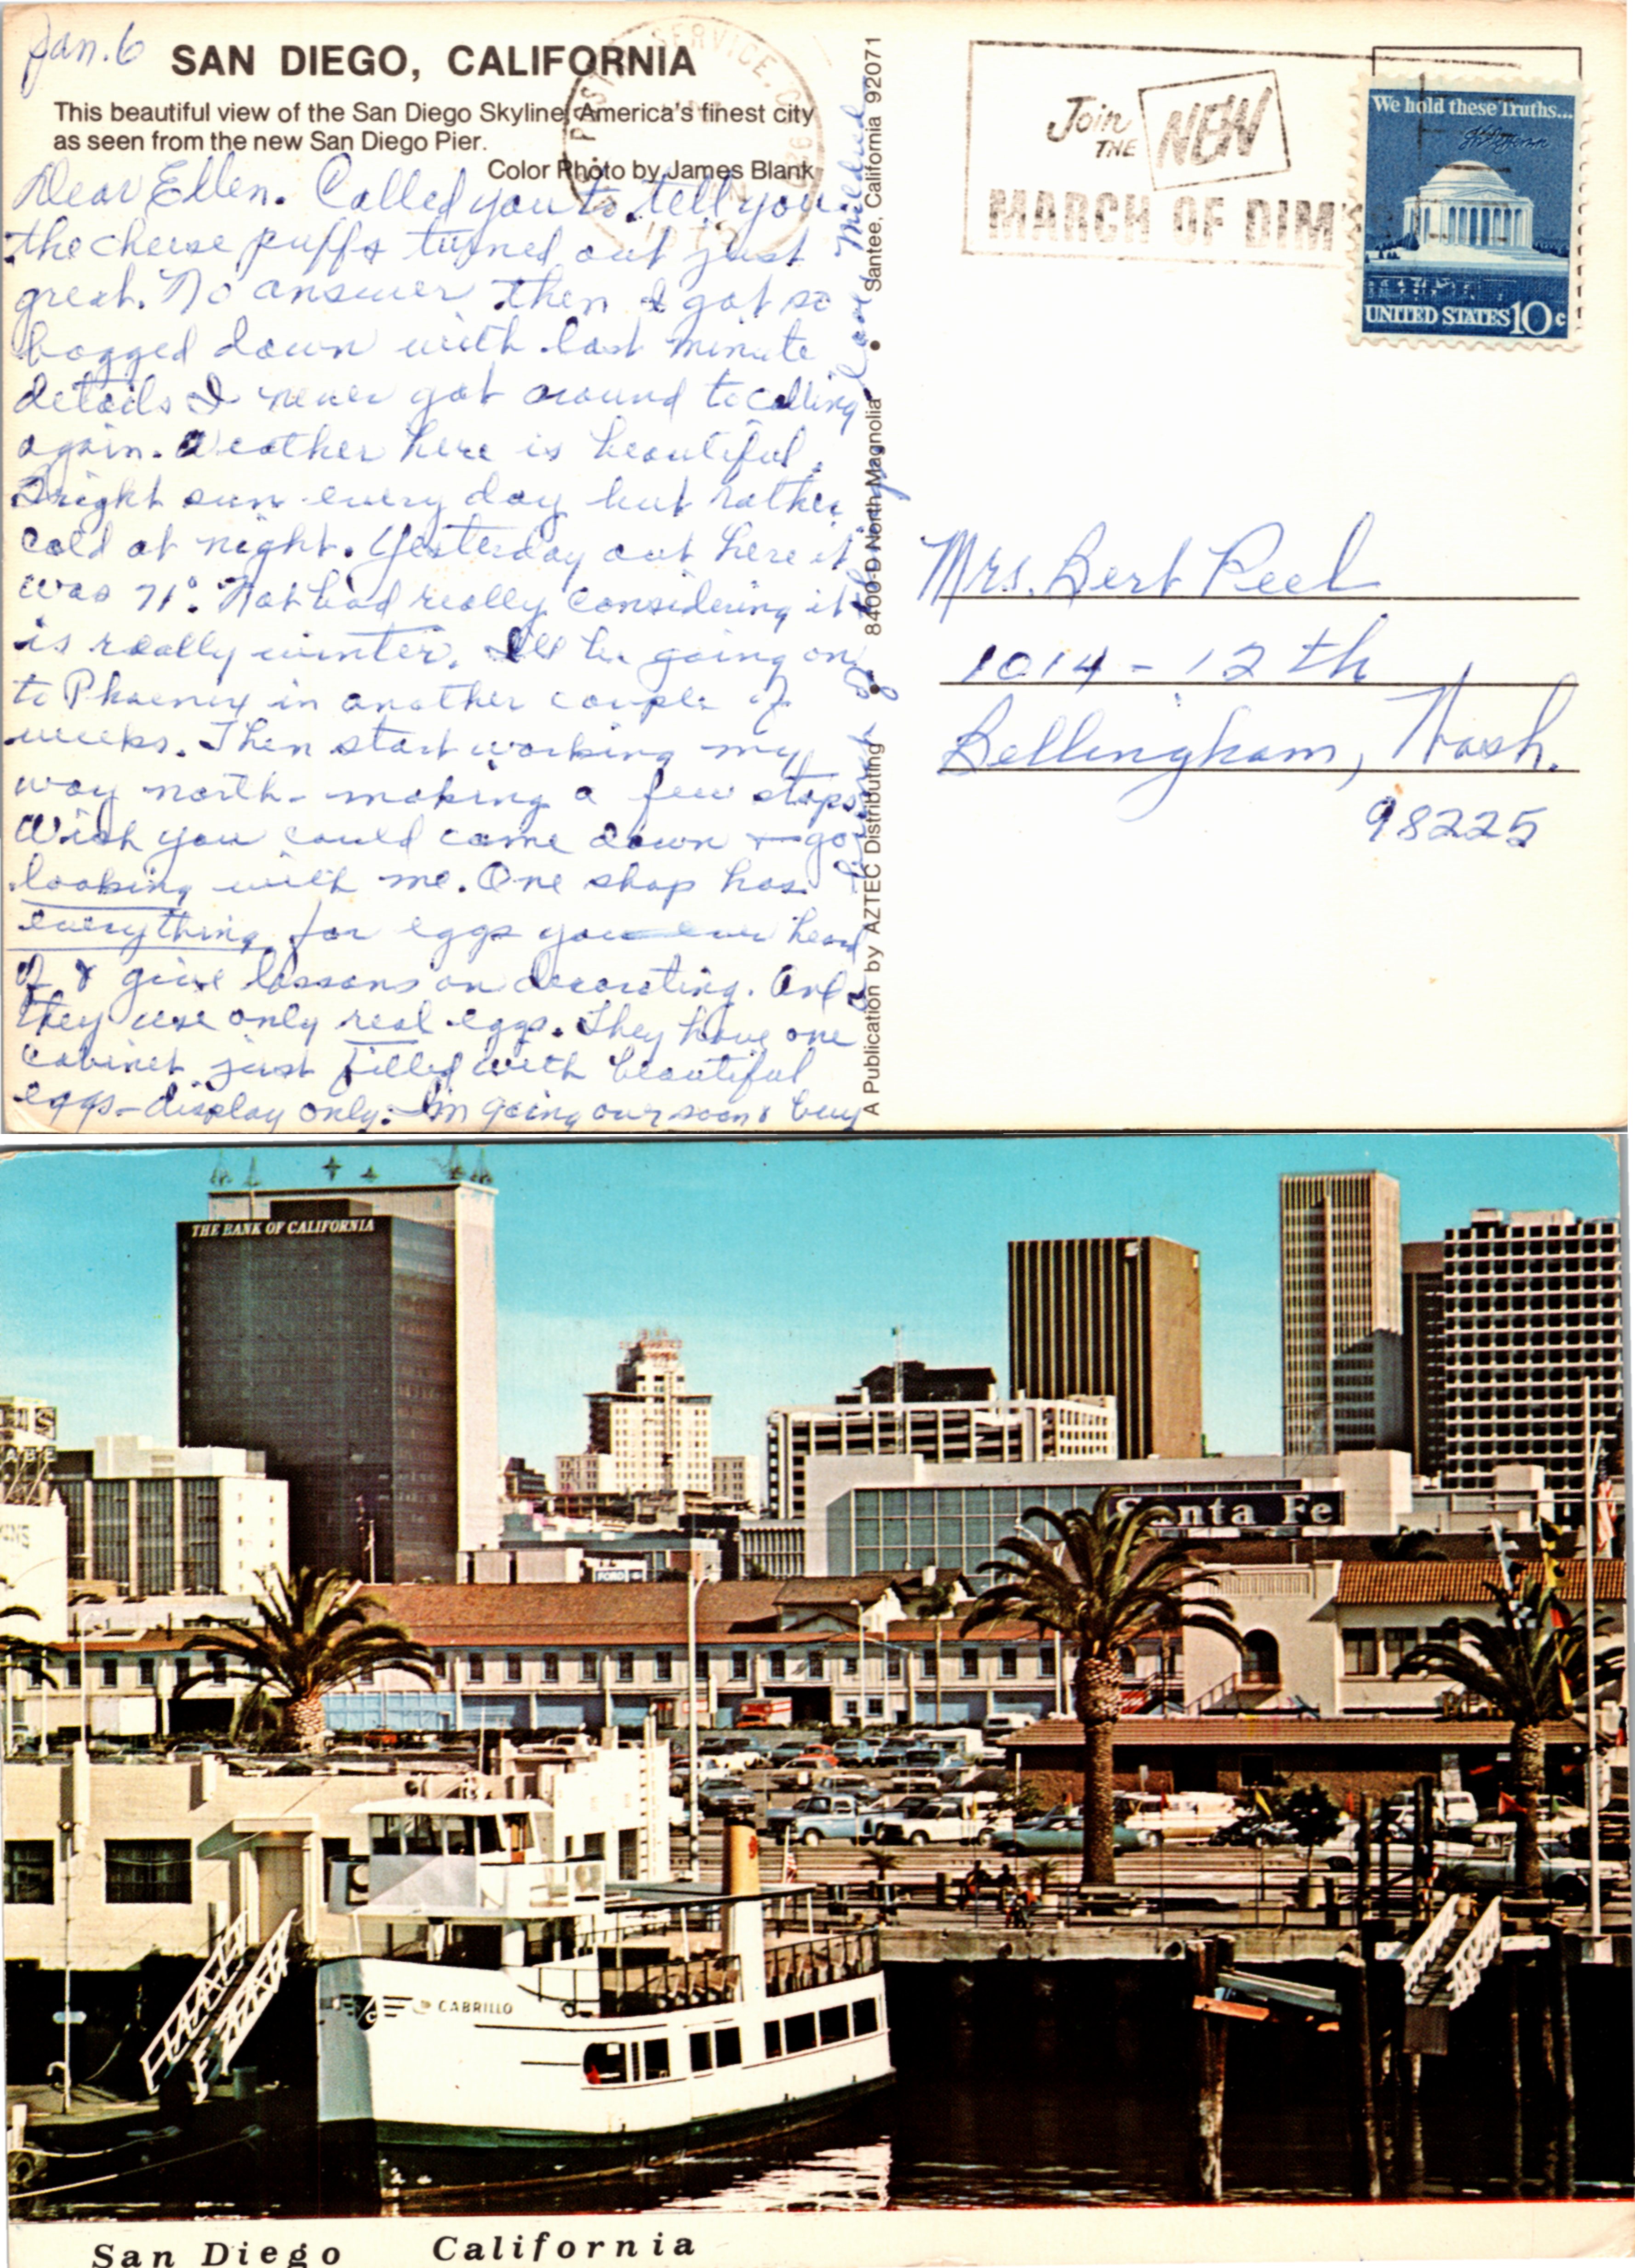 Jan. 6
SAN DIEGO, CALIFORNIA
This beautiful view of the San Diego Skyline, America's finest city
as seen from the new San Diego Pier.
Color Photo by James Blank
Dear Ellen. Called you to tell you
the cheese puffs turned out just
great. No answer then I got so
bogged down with last minute
details I never got around to calling
again. Weather here is beautiful.
Bright sun every day but rather
cold at night. Yesterday out here it
was 71°. Not bad really considering it
is really winter. I'll be going on
to Phoenix in another couple of
weeks. Then start working my
way north - making a few stops
Wish you could come down + go
looking with me. One shop has
everything for eggs you ever heard
of & give lessons on decorating. And
they use only real eggs. They have one
cabinet just filled with beautiful
eggs - display only. I'm going over soon & buy
love Mildred
A Publication by AZTEC Distributing • 8400-D North Magnolia • Santee, California 92071
POSTAL SERVICE, CA
Join
THE NEW
MARCH OF DIM
We hold these Truths...
UNITED STATES 10c
Mrs. Bert Peel
1014 - 12th
Bellingham, Wash.
98225
THE BANK OF CALIFORNIA
Santa Fe
FORD
CABRILLO
San Diego California